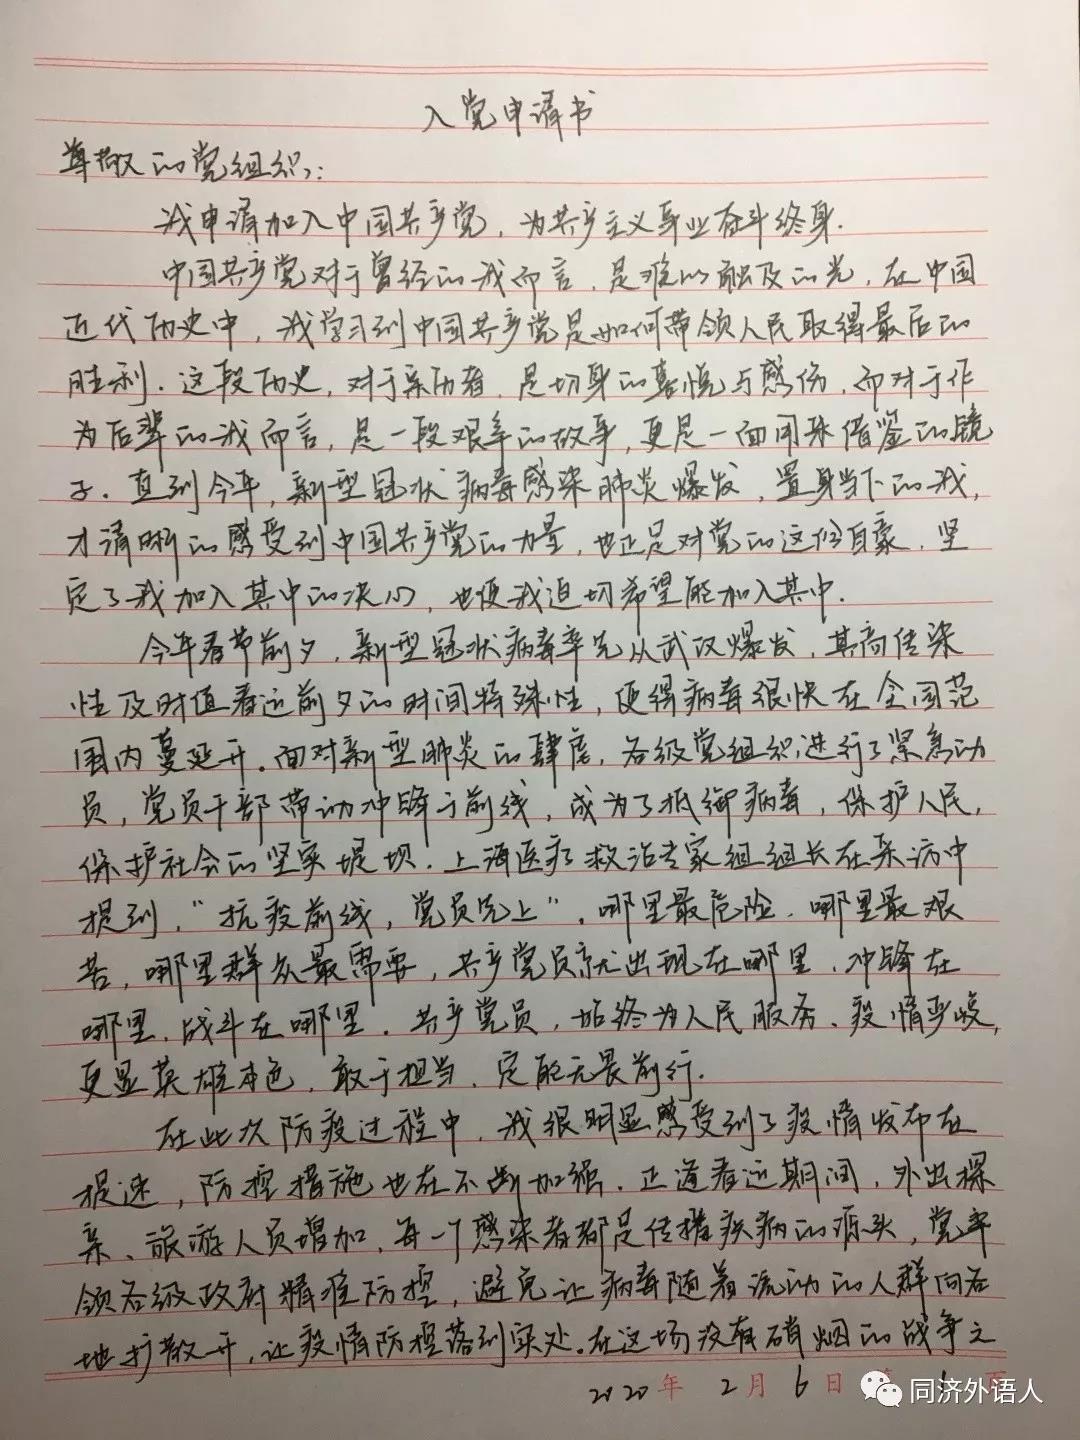 入党申请书
尊敬的党组织：
我申请加入中国共产党，为共产主义事业奋斗终身．
中国共产党对于曾经的我而言，是难以触及的光，在中国
近代历史中，我学习到中国共产党是如何带领人民取得最后的
胜利．这段历史，对于亲历者，是切身的喜悦与感伤，而对于作
为后辈的我而言，是一段艰辛的故事，更是一面用来借鉴的镜
子．直到今年，新型冠状病毒感染肺炎爆发，置身当下的我，
才清晰的感受到中国共产党的力量，也正是对党的这份自豪，坚
定了我加入其中的决心，也使我迫切希望能加入其中．
今年春节前夕，新型冠状病毒率先从武汉爆发，其高传染
性及时值春运前夕的时间特殊性，使得病毒很快在全国范
围内蔓延开．面对新型肺炎的肆虐，各级党组织进行了紧急动
员，党员干部带动冲锋于前线，成为了抵御病毒，保护人民，
保护社会的坚实堤坝．上海医疗救治专家组组长在采访中
提到，“抗疫前线，党员先上”，哪里最危险．哪里最艰
苦，哪里群众最需要，共产党员就出现在哪里．冲锋在
哪里，战斗在哪里．共产党员，始终为人民服务．疫情严峻，
更显英雄本色，敢于担当，定能无畏前行．
在此次防疫过程中，我很明显感受到了疫情发布在
提速，防控措施也在不断加强．正逢春运期间，外出探
亲、旅游人员增加，每一个感染者都是传播疾病的源头，党率
领各级政府精准防控，避免让病毒随着流动的人群向各
地扩散开，让疫情防控落到实处．在这场没有硝烟的战争之
2020年 2月 6日 第 1 页
同济外语人